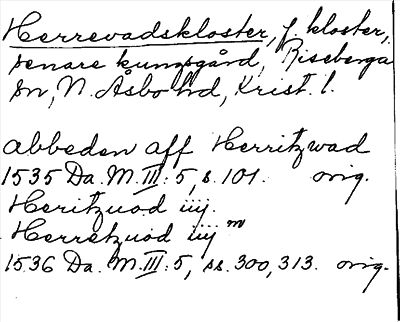 Herrevadskloster, f. kloster,
senare kungsgård, Riseberga
sn, N. Åsbo hd, Krist. l.
abbeden aff Herritzwad
1535 Da. M. III: 5, s. 101. orig.
Heritzuod iiij.
Herretzuod iiij m
1536 Da. M. III: 5, ss. 300, 313. orig.